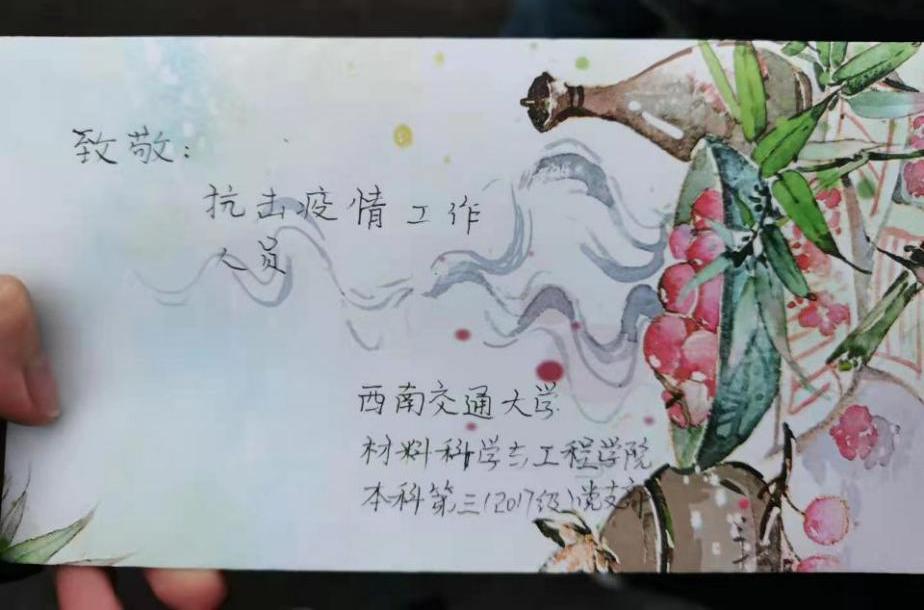 致敬:
抗击疫情工作
人员
西南交通大学
材料科学与工程学院
本科第三(2017级)党支部